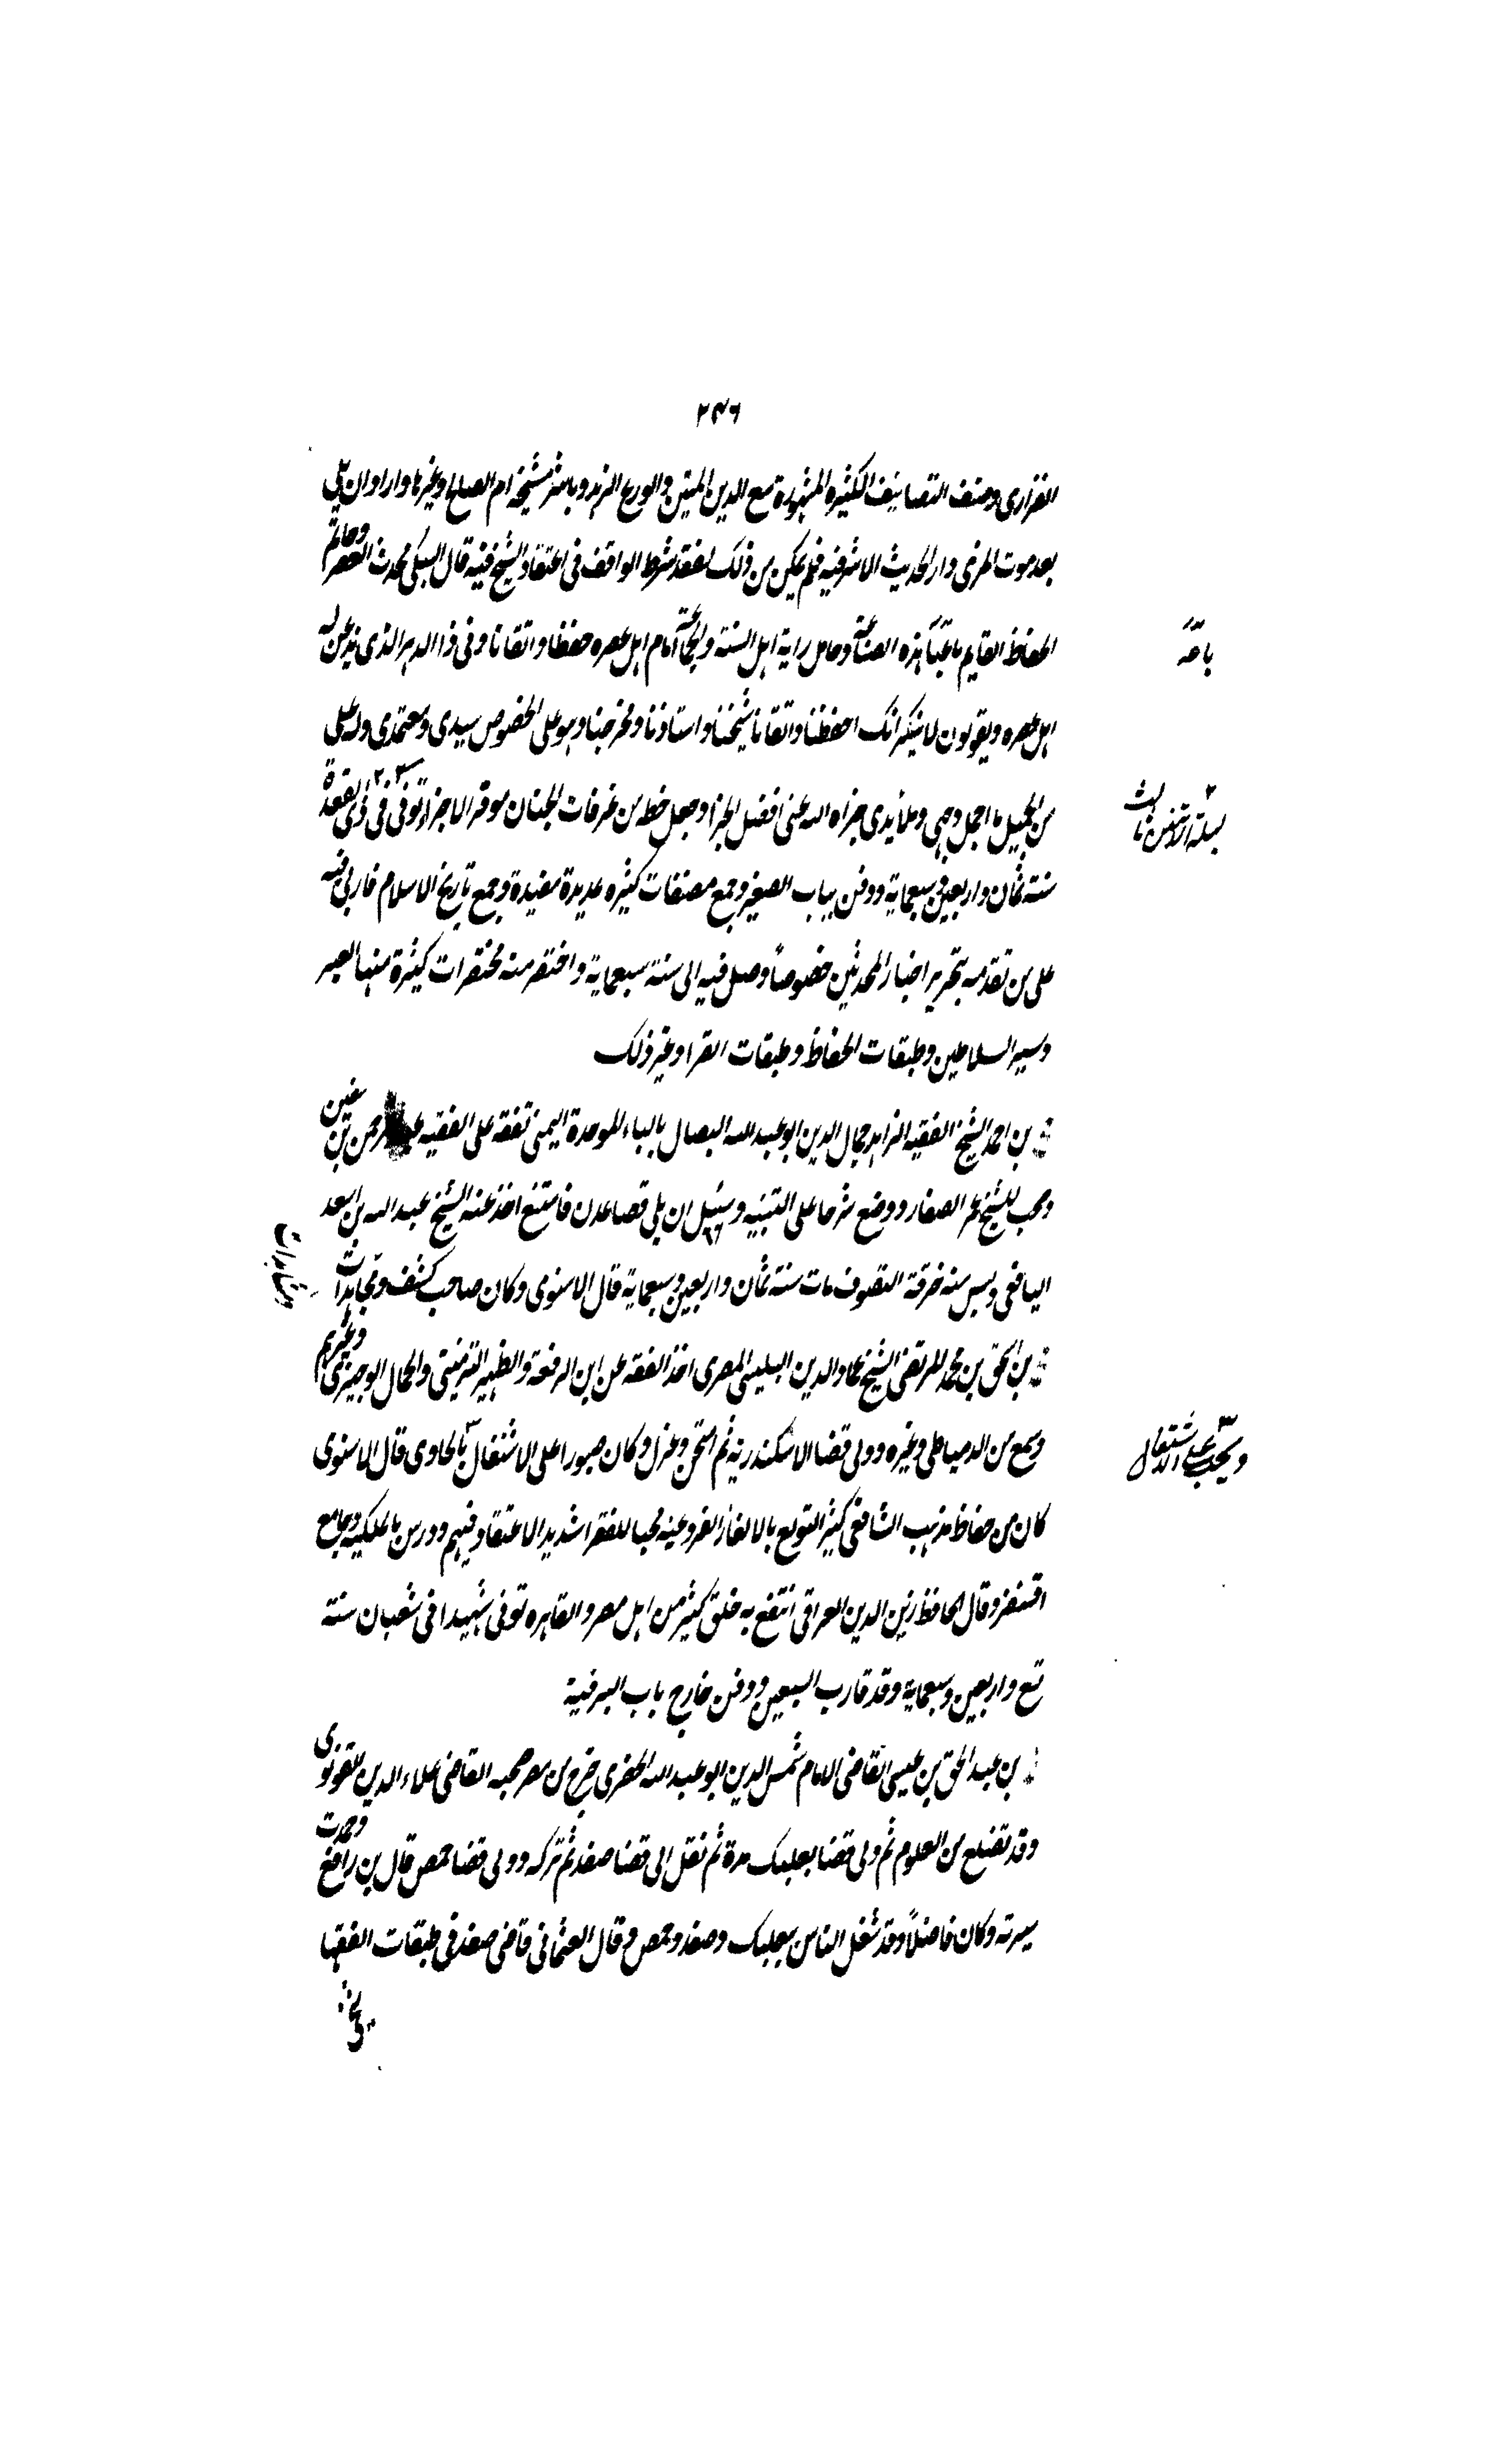 ٢٤٦
الفزارى وصنف التصانيف الكثيره المشهورة مع الدين المتين والورع الزهد وباشر مشيخة ام الصالح وغيرها واراد ان يلى
بعد موت المزى دار الحديث الاشرفيه فلم يمكن من ذلك لفقد شرط الواقف فى اعتقاد الشيخ فيه قال السبكى محدث العصر وخاتم
الحفاظ القايم باعباء هذه الصناعة وحامل راية اهل السنة والجماعة امام اهل عصره حفظا واتقانا وفى ذا الدهر الذى يذعن له
باعه
اهل عصره ويقولون لا ينكر انك احفظنا واتقانا شيخنا واستاذنا ومخرجنا وهو على الخصوص سيدى ومعتمدى وله على
من الجميل ما اجمل وجهى وملأ يدى جزاه الله عنى افضل الجزا وجعل حظه من غرفات الجنان موفر الاجزاء توفى فى ذى القعدة
ليلة الاثنين ثالث
سنة ثمان واربعين وسبعماية ودفن بباب الصغير وجمع مصنفات كثيره عديدة مفيدة وجمع تاريخ الاسلام فاربى فيه
على من تقدمه بتحرير اخبار المحدثين خصوصاً وصل فيه الى سنة سبعماية واختصر منه مختصرات كثيرة منها العبر
وسير السلاطين وطبقات الحفاظ وطبقات القرا وغير ذلك
بن احمد الشيخ الفقيه الزاهد جمال الدين ابو عبد الله البصال بالباء الموحدة اليمنى تفقه على الفقيه عبد الرحمن بن
وصحب الشيخ عمر الصفار ووضع شرحا على التنبيه وسئل ان يلى قضا عدن فامتنع اخذ عنه الشيخ عبد الله بن اسعد
اليافعى ولبس منه خرقة التصوف مات سنة ثمان واربعين وسبعماية قال الاسنوى وكان صاحب كشف ومجاهدات
بن اسحق بن محمد المرتضى الشيخ عماد الدين البلبيسى المصرى اخذ الفقه عن ابن الرفعة والظهير التزمنتى والجمال الوجيزى وغيرهم
وسمع من الدمياطى وغيره وولى قضا الاسكندرية ثم امتحن وعزل وكان صبورا على الاشتغال بالحاوى قال الاسنوى
ويحث على الاشتغال
كان من حفاظ مذهب الشافعى كثير التولع بالالغاز الفروعيه محبا للفقرا شديد الاعتقاد فيهم ودرس بالملكيه وجامع
اقسنقر وقال الحافظ زين الدين العراقى انتفع به خلق كثير من اهل مصر والقاهره توفى شهيدا فى شعبان سنة
تسع واربعين وسبعماية وقد قارب السبعين ودفن خارج باب البرقية
بن عبد الحق بن عيسى القاضى الامام شمس الدين ابو عبد الله الخضرى خرج من مصر صحبه القاضى علاء الدين القونوى
وقد تضلع من العلوم ثم ولى قضا بعلبك مدة ثم نقل الى قضا صفد ثم تركه وولى قضا حمص قال بن رافع وحمدت
سيرته وكان فاضلاً وقد شغل الناس ببعلبك وصفد وحمص وقال العثمانى قاضى صفد فى طبقات الفقها